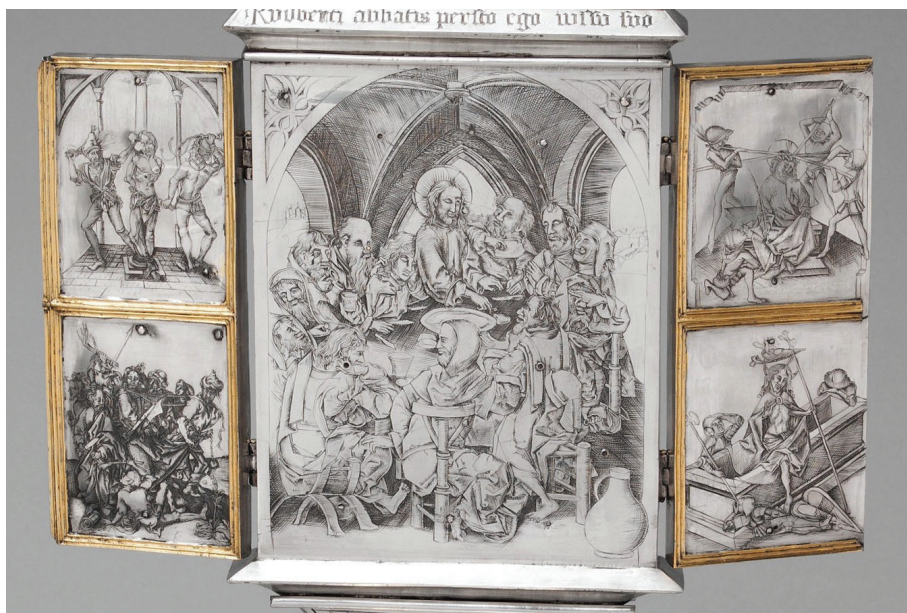 Rudberti abbatis persto ego iussu suo